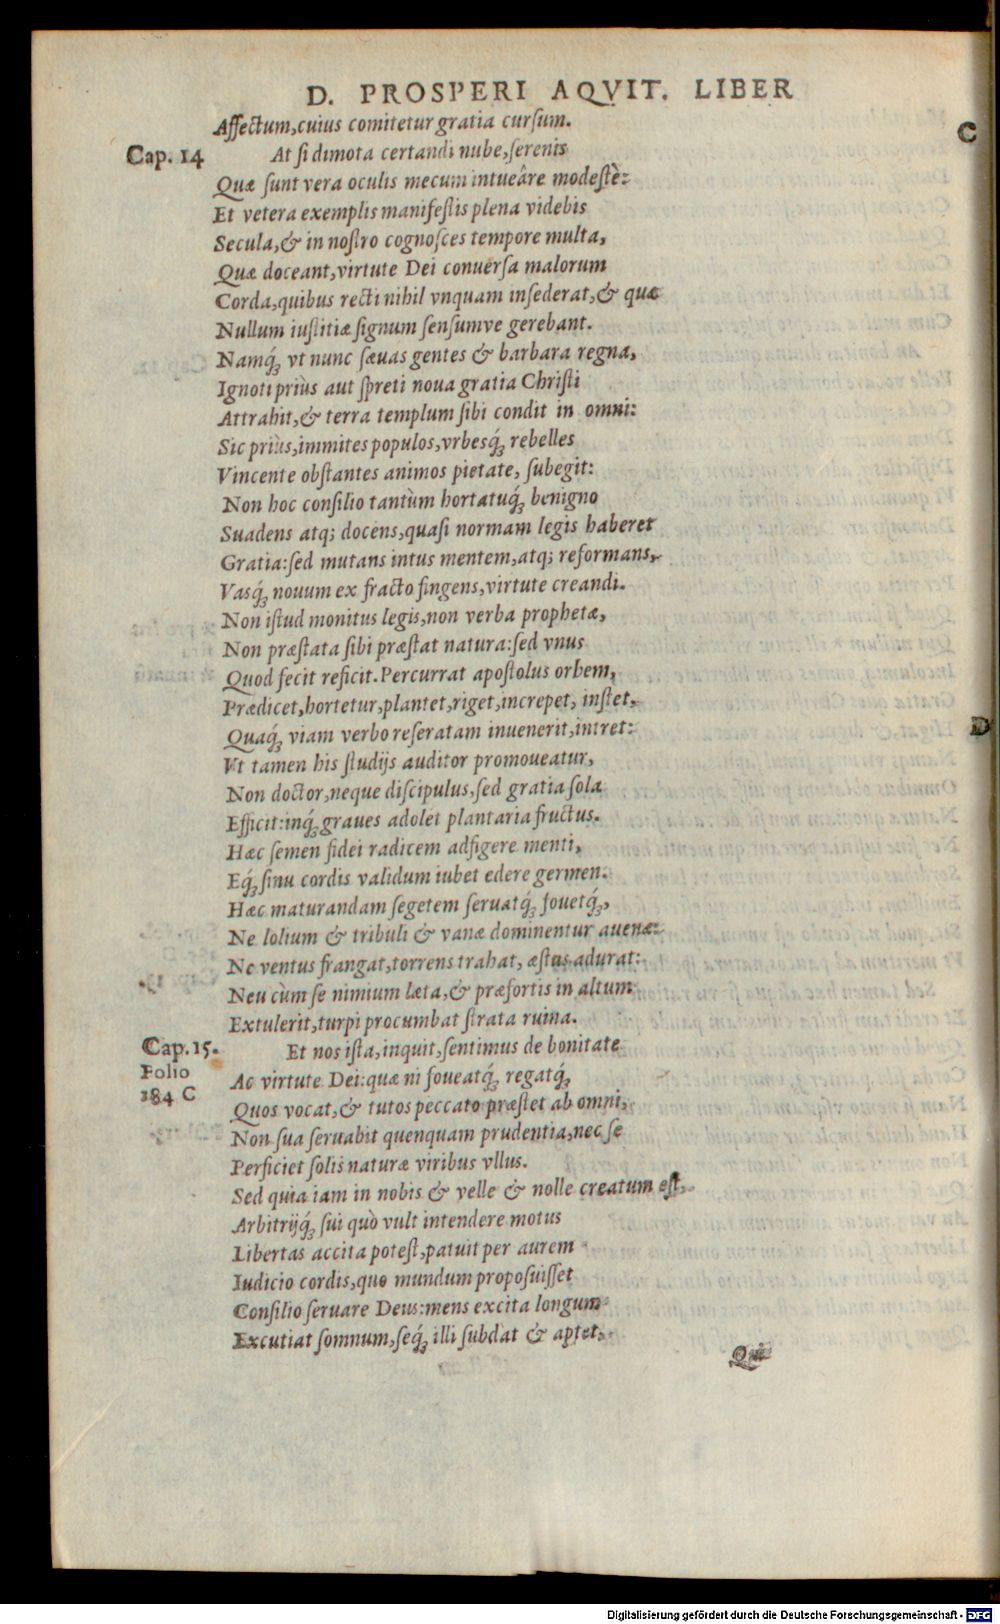 D. PROSPERI AQVIT. LIBER
Affectum,cuius comitetur gratia cursum.
C
Cap. 14 At si dimota certandi nube,serenis
Quæ sunt vera oculis mecum intueâre modestè:
Et vetera exemplis manifestis plena videbis
Secula,& in nostro cognosces tempore multa,
Quæ doceant,virtute Dei conuersa malorum
Corda,quibus recti nihil vnquam insederat,& quæ
Nullum iustitiæ signum sensumve gerebant.
Namq́; vt nunc sæuas gentes & barbara regna,
Ignoti priùs aut spreti noua gratia Christi
Attrahit,& terra templum sibi condit in omni:
Sic priùs,immites populos,vrbesq́; rebelles
Vincente obstantes animos pietate, subegit:
Non hoc consilio tantùm hortatuq́; benigno
Suadens atq; docens,quasi normam legis haberet
Gratia:sed mutans intus mentem,atq; reformans,
Vasq́; nouum ex fracto fingens,virtute creandi.
Non istud monitus legis,non verba prophetæ,
Non præstata sibi præstat natura:sed vnus
Quod fecit reficit.Percurrat apostolus orbem,
Prædicet,hortetur,plantet,riget,increpet, instet,
D
Quaq́; viam verbo reseratam inuenerit,intret:
Vt tamen his studijs auditor promoueatur,
Non doctor,neque discipulus,sed gratia sola
Efficit:inq́; graues adolet plantaria fructus.
Hæc semen fidei radicem adfigere menti,
Eq́; sinu cordis validum iubet edere germen.
Hæc maturandam segetem seruatq́; fouetq́;,
Ne lolium & tribuli & vanæ dominentur auenæ:
Ne ventus frangat,torrens trahat, æstus adurat:
Neu cùm se nimium læta,& præfortis in altum
Extulerit,turpi procumbat strata ruina.
Cap.15. Et nos ista,inquit,sentimus de bonitate
Folio
184 C
Ac virtute Dei:quæ ni foueatq́; regatq́;
Quos vocat,& tutos peccato præstet ab omni,
Non sua seruabit quenquam prudentia,nec se
Perficiet solis naturæ viribus vllus.
Sed quia iam in nobis & velle & nolle creatum est,
Arbitrijq́; sui quò vult intendere motus
Libertas accita potest,patuit per aurem
Iudicio cordis,quo mundum proposuisset
Consilio seruare Deus:mens excita longum
Excutiat somnum,seq́; illi subdat & aptet,
Qui
Digitalisierung gefördert durch die Deutsche Forschungsgemeinschaft - DFG